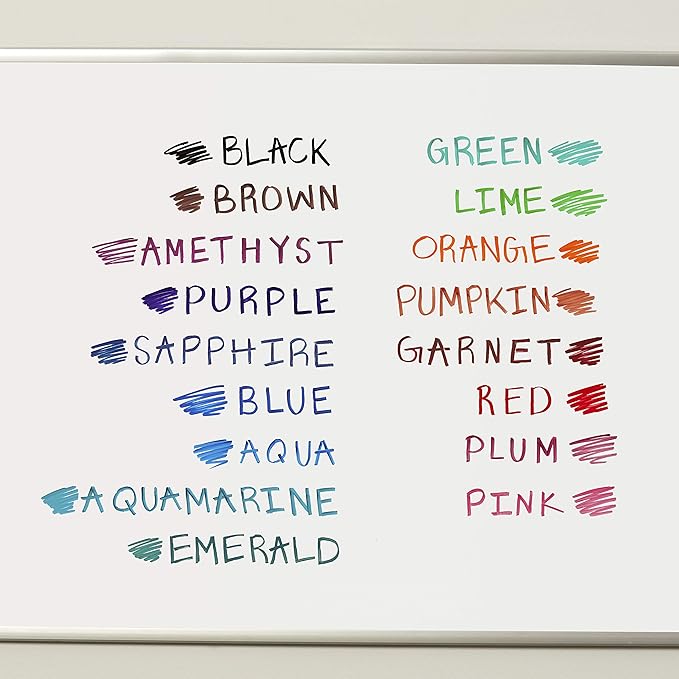 BLACK
BROWN
AMETHYST
PURPLE
SAPPHIRE
BLUE
AQUA
AQUAMARINE
EMERALD
GREEN
LIME
ORANGE
PUMPKIN
GARNET
RED
PLUM
PINK